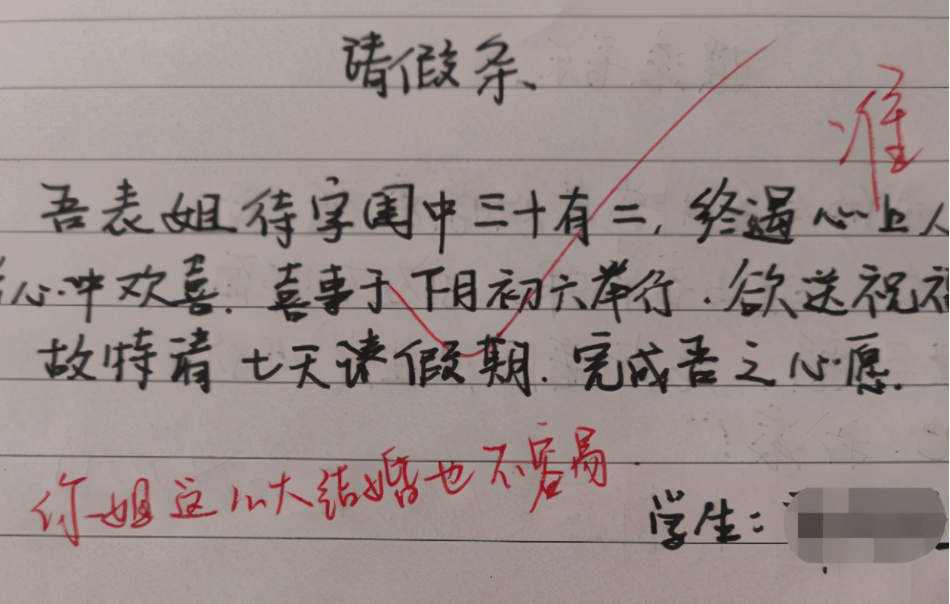 请假条
准
吾表姐待字闺中三十有二,终遇心上人
心中欢喜.喜事于下月初六举行.欲送祝
故特请七天请假期.完成吾之心愿.
你姐这么大结婚也不容易
学生: